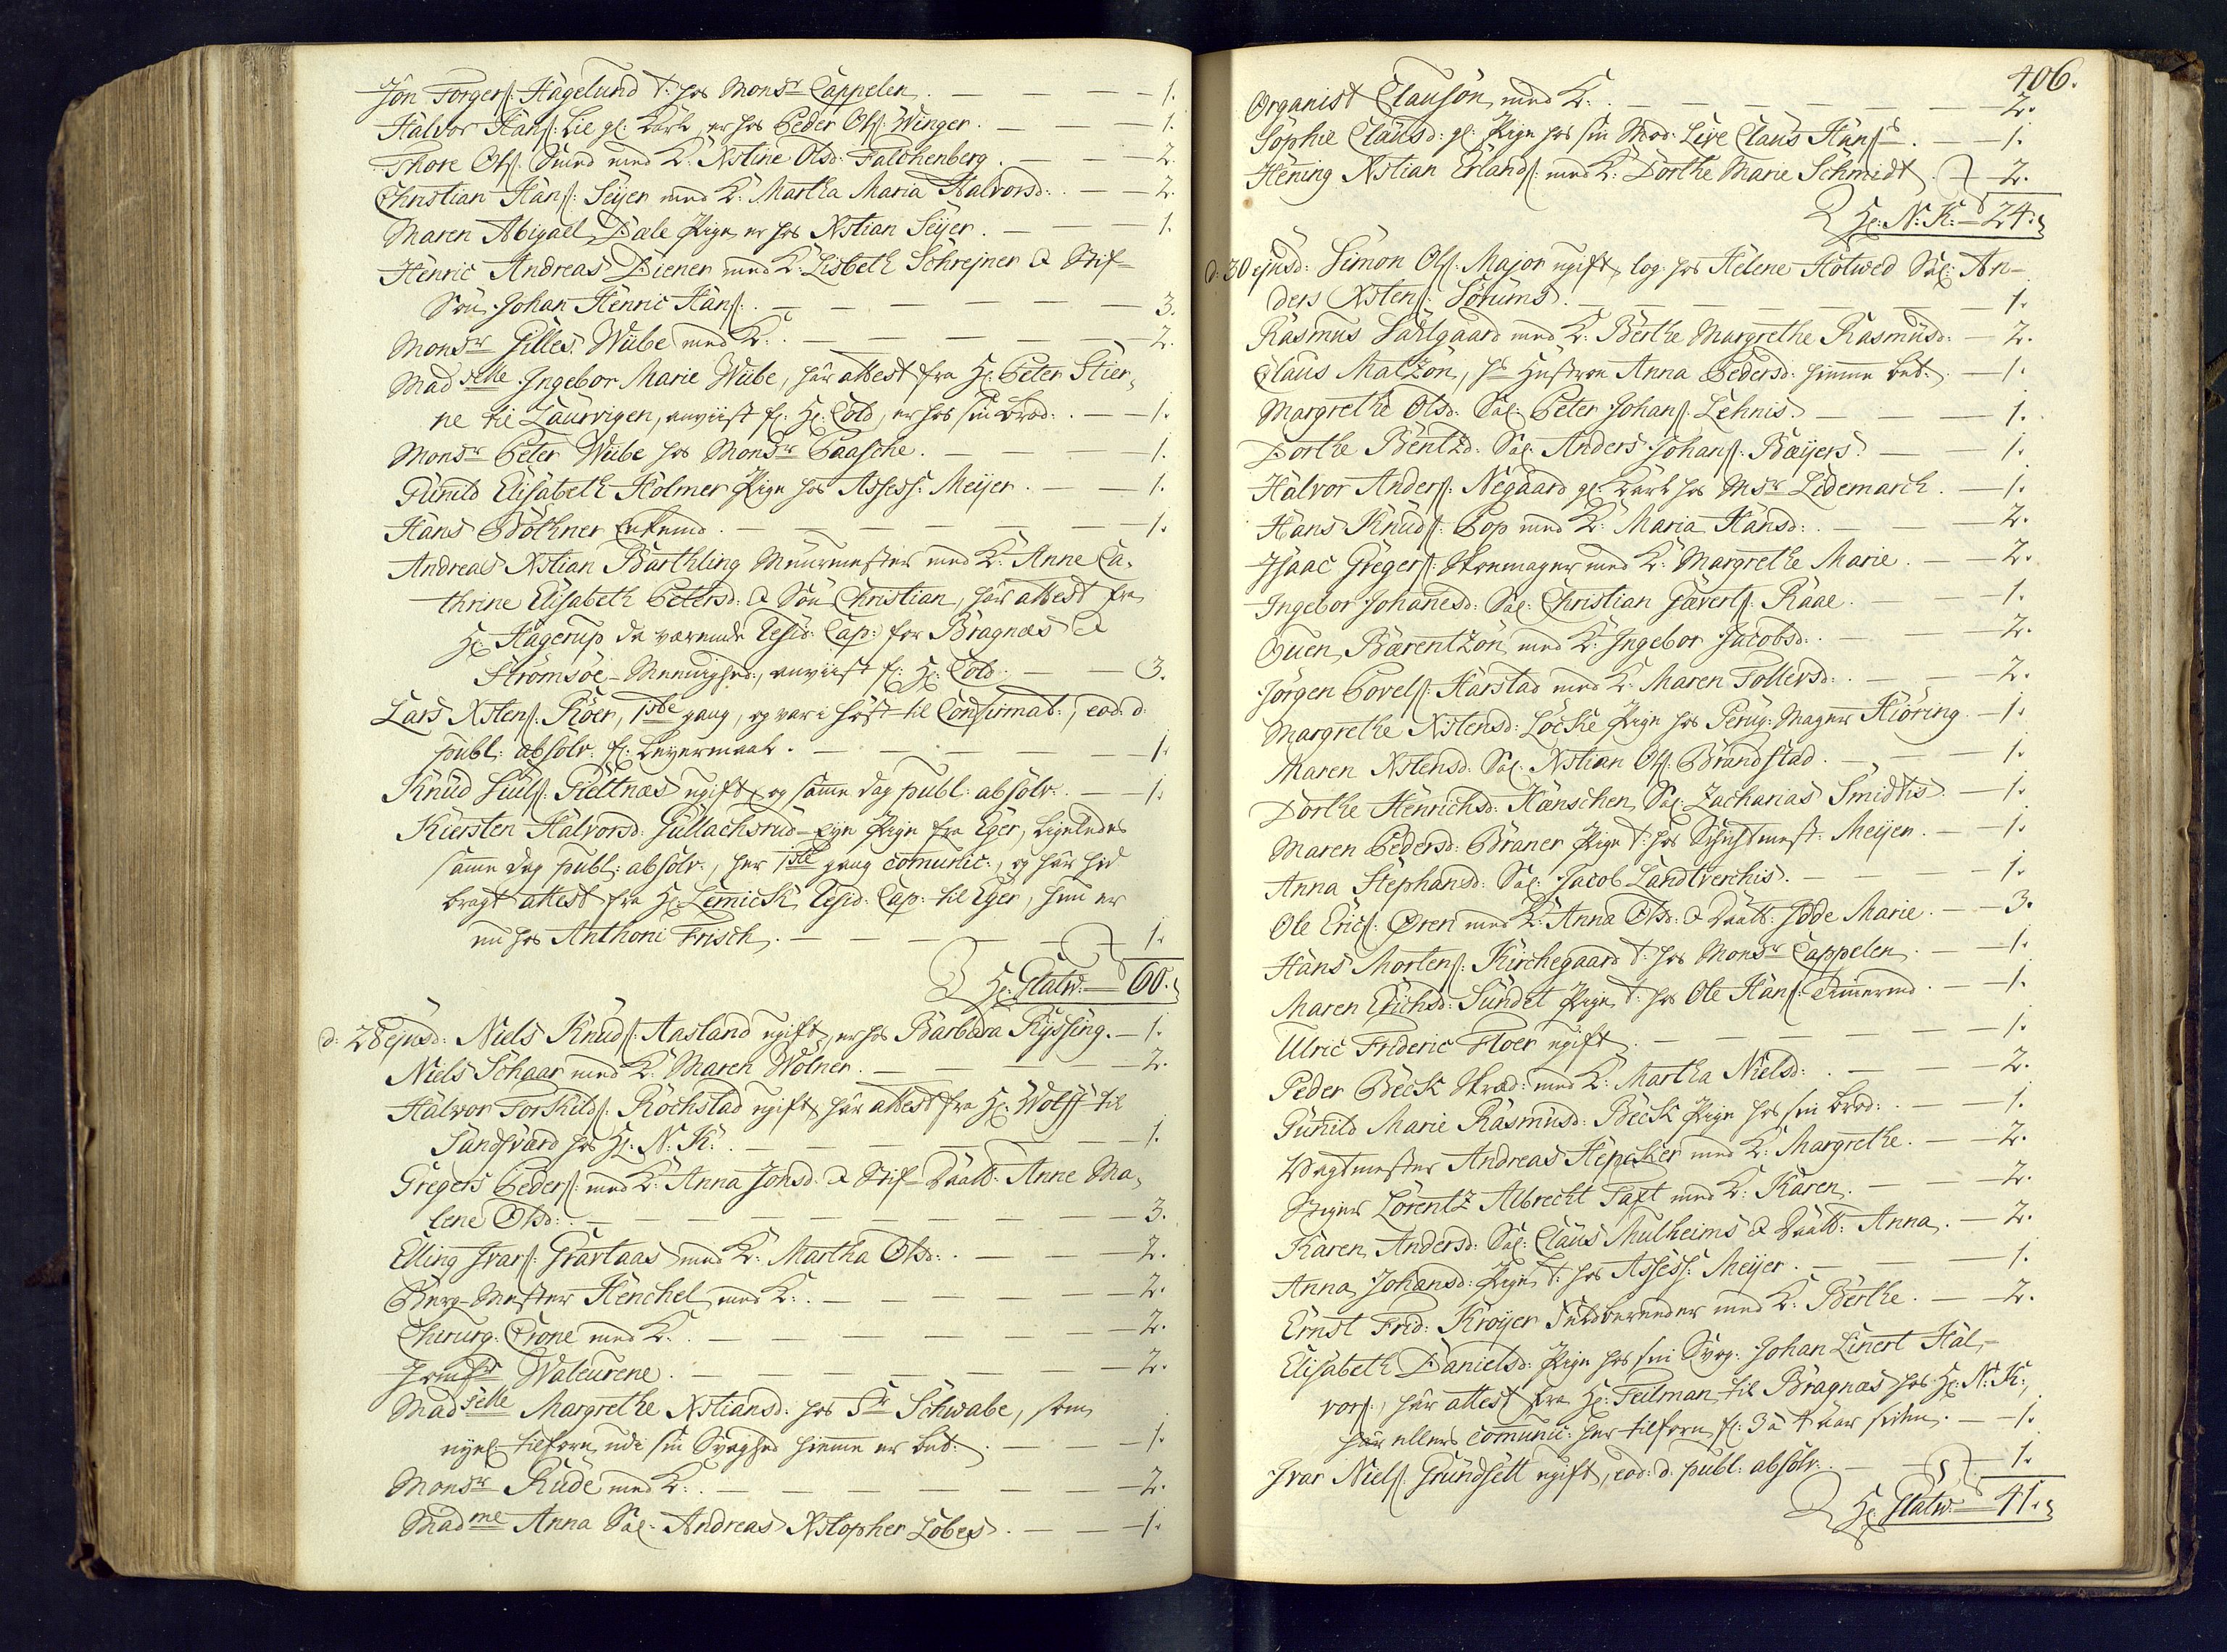 Jon Torgers: Hagelund t: hos Monsr Cappelen. 1.
Halvor Hans: Lie gl: Karl, er hos Peder Ols: Winger. 1.
Thore Ols: Smed med K: Xstine Olsd: Falchenberg. 2.
Christian Hans: Seyer med K: Martha Maria Halvorsd: 2.
Maren Abigael Dale Pige, er hos Xstian Seyer. 1.
Henric Andreas Diener med K: Lisbeth Schrejner & Stif-
Søn Johan Henric Hans: 3.
Monsr Gilles Wiibe med K: 2.
Madselle Ingebor Marie Wiibe, har attest fra Hr: Peter Stier-
ne til Laurvigen, anviist f: Hr: Cold, er hos sin Brod: 1.
Monsr Peter Wiibe hos Monsr Paasche. 1.
Gunild Elisabeth Holmer Pige hos Assess: Meijer. 1.
Hans Bøthner Enkemd. 1.
Andreas Xstian Barthling Muurmester med K: Anne Ca-
thrine Elisabeth Petersd: & Søn Christian, har attest fra
Hr: Hagerup da værende Resid: Cap: for Bragnæs &
Strømsøe-Meenighed:, anviist f: Hr: Cold. 3.
Lars Xstens: Röer, 1ste gang, og var i høst til Confirmat:, eod: d:
publ: absolv: f: Leyermaal. 1.
Knud Juuls: Fiellnæs ugift, og samme dag publ: absolv: 1.
Kiersten Halvorsd: Gullachsrud-Eye Pige fra Eger, ligeledes
samme dag publ: absolv:, her 1ste gang comunic:, og har hid
bragt attest fra Hr: Lemick Resid: Cap: til Eger, hun er
nu hos Anthoni Frisch. 1.
Hr: Statw: 60.
d: 28 ejusd: Niels Knuds: Aasland ugift, er hos Barbara Kyssing. 1.
Niels Schaar med K: Maren Wolner. 2.
Halvor Torkilds: Rochstad ugift, har attest fra Hr: Wolff til
Sandsværd hos Hr: N: K: 1.
Gregers Peders: med K: Anna Jonsd: & Stif-Daatt: Anne Ma-
lene Olsd: 3.
Elling Ivars: Gravlaas med K: Martha Olsd: 2.
Berg-Mester Henchel med K: 2.
Chirurg: Crone med K: 2.
Jomfr Waleurene. 2.
Madselle Margrethe Xstiansd: hos Sr Schwabe, som
nyel: tilforn udi sin Svaghed hiemme er bet: 1.
Monsr Rude med K: 2.
Madme Anna Sal: Andreas Xstopher Lobes. 1.
406.
Organist Clauson med K: 2.
Sophie Clausd: gl: Pige hos sin Mod: Live Claus Hans: 1.
Hening Xstian Erlands: med K: Dorthe Marie Schmidt. 2.
Hr: N: K: 24.
d: 30 ejusd: Simon Ols: Major ugift, log: hos Helene Hotwed Sal: An-
ders Xstens: Sörums. 1.
Rasmus Dahlgaard med K: Berthe Margrethe Rasmusd: 2.
Claus Matzon, hs Hustroe Anna Pedersd: hiemme bet: 1.
Margrethe Olsd: Sal: Peter Johans: Lehnis. 1.
Dorthe Bentzd: Sal: Anders Johans: Bæijers. 1.
Halvor Anders: Negaard gl: Karl hos Msr Lidemarch. 1.
Hans Knuds: Pop med K: Maria Hansd: 2.
Isaac Gregers: Skoemager med K: Margrethe Marie. 2.
Ingebor Johanesd: Sal: Christian Gæverts: Raae. 1.
Ouen Bærentzön med K: Ingebor Jacobsd: 2.
Jørgen Povels: Harstad med K: Maren Tollevsd: 2.
Margrethe Xstensd: Locke Pige hos Peruq: Mager Kiöring. 1.
Maren Xstensd: Sal: Xstian Ols: Brandstad. 1.
Dorthe Henrichsd: Hænschen, Sal: Zacharias Smidtis. 1.
Maren Pedersd: Braner Pige t: hos Schichtmest: Meijer. 1.
Anna Stephansd: Sal: Jacob Landtverchis. 1.
Ole Erics: Øren med K: Anna Olsd: & Daatt: Jode Marie. 3.
Hans Mortens: Kirchegaard t: hos Monsr Cappelen. 1.
Maren Erichsd: Sundet Pige t: hos Ole Hans: Timermd. 1.
Ulric Frideric Floer ugift. 1.
Peder Beck Skræd: med K: Martha Nielsd: 2.
Gunild Marie Rasmusd: Beck Pige hos sin Brod: 1.
Vagtmester Andreas Hencker med K: Margrethe. 2.
Stiger Lorentz Albrecht Taft med K: Karen. 2.
Karen Andersd: Sal: Claus Mulheims & Daatt: Anna. 2.
Anna Johansd: Pige t: hos Assess: Meijer. 1.
Ernst Frid: Kroijer Sølvbrender med K: Berthe. 2.
Elisabeth Danielsd: Pige hos sin Svog: Johan Linert Hal-
vors:, har attest fra Hr: Feilman til Bragnæs hos Hr: N: K:,
har ellers comunic: her tilforn f: 3 a 4 aar siden. 1.
Ivar Niels: Grundsell ugift, eod: d: publ: absolv: 1.
Hr: Statw: 41.